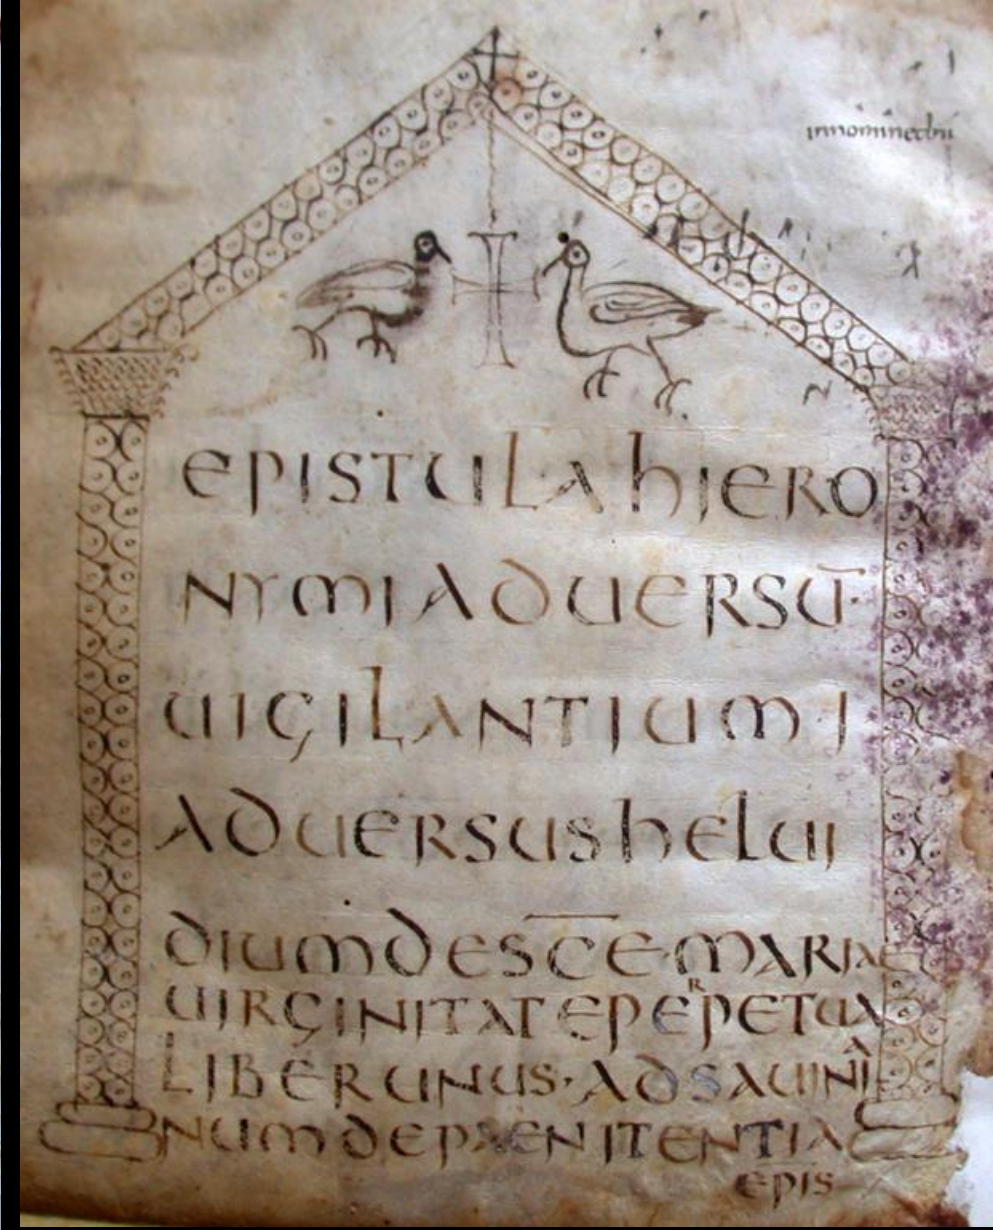 innominedni
EPISTULAHIERO
NYMIADUERSŪ·
UIGILANTIUM·I
ADUERSUSHELUI
DIUMDESC̅E·MARIA
UIRGINITATEPERPETUA
LIBERUNUS·ADSAUINI
NUMDEPAENITENTIA
EPIS